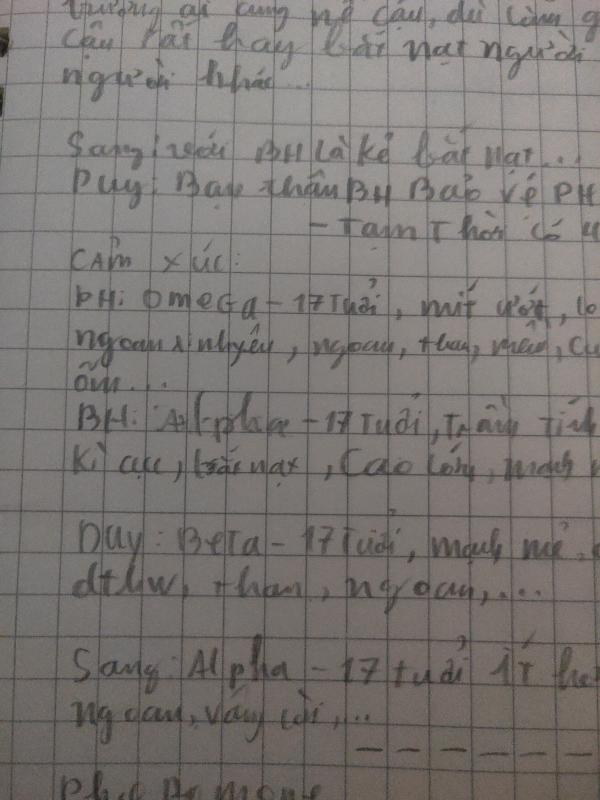 trường ai cũng nể cậu, dù làm g
cậu rất hay bắt nạt người
người khác...
Sang: với BH là kẻ bắt nạt...
Duy: Bạn thân BH Bảo vệ PH
- Tạm Thời có
CẢM XÚC:
PH: Omega - 17 Tuổi, mít ướt, lo
ngoan xinh yêu, ngoan,
ốm...
BH: Alpha - 17 Tuổi, Trầm Tính
Kì cục, bắt nạt, Cao lớn, mạnh
Duy: BeTa - 17 Tuổi, mạnh mẽ,
dthw, than, ngoan,...
Sang: Alpha - 17 tuổi ÍT
ngoan, vâng lời,...